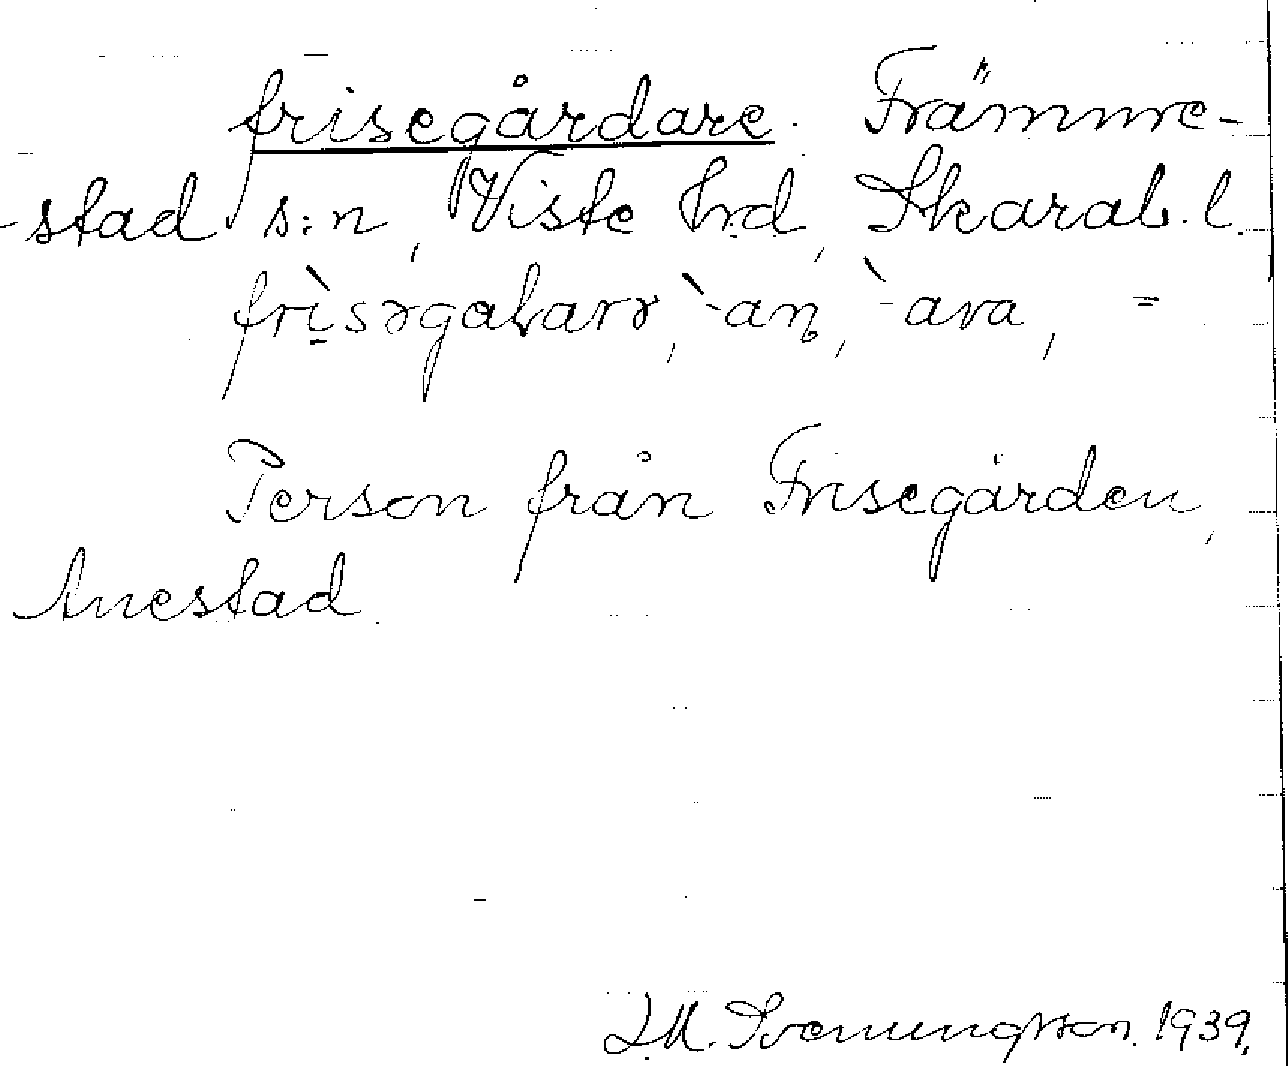 frisegårdare. Främme-
-stad s:n, Viste hrd, Skarab. l.
frìsəgaƚarə, `-an, `-ara, =
Person från Frisegården,
Anestad.
J.M. Svenungsson. 1939.